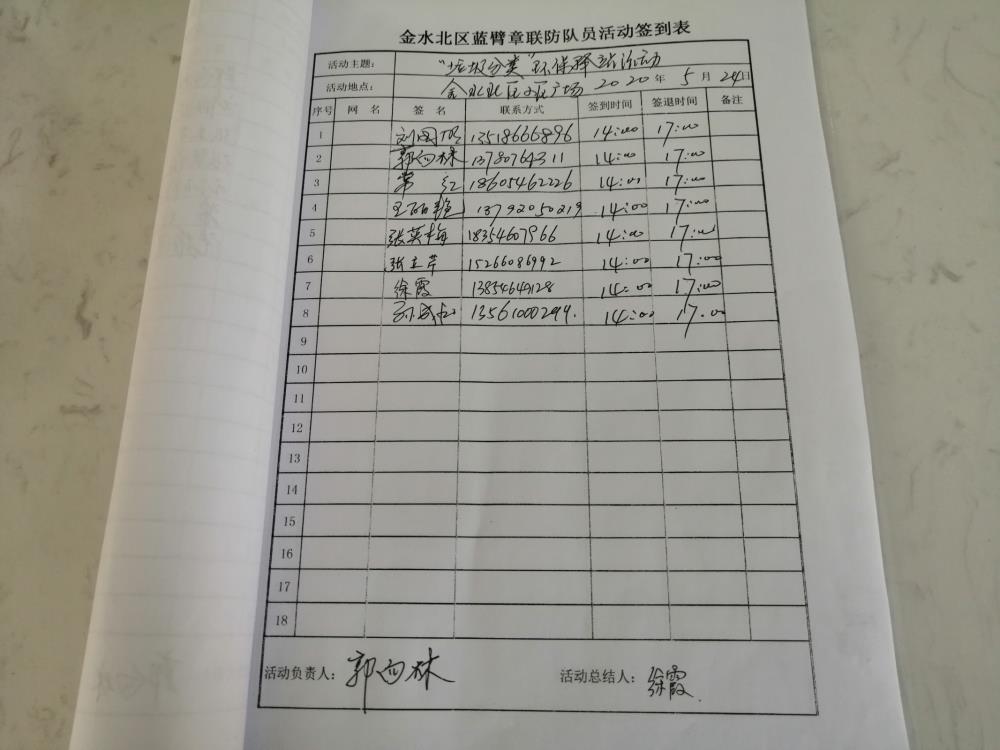 金水北区蓝臂章联防队员活动签到表
活动主题： "垃圾分类"环保驿站活动
活动地点： 金水北区小区广场 2020年5月24日
序号 网 名 签 名 联系方式 签到时间 签退时间 备注
1 刘国 13518666896 14:00 17:00
2 郭向林 13780764311 14:00 17:00
3 常 红 18605462226 14:00 17:00
4 王丽艳 13792050219 14:00 17:00
5 张英梅 18354607966 14:00 17:00
6 张立芹 15266086992 14:00 17:00
7 徐霞 13854644128 14:00 17:00
8 13561000299. 14:00 17:00
9
10
11
12
13
14
15
16
17
18
活动负责人： 郭向林 活动总结人： 徐霞